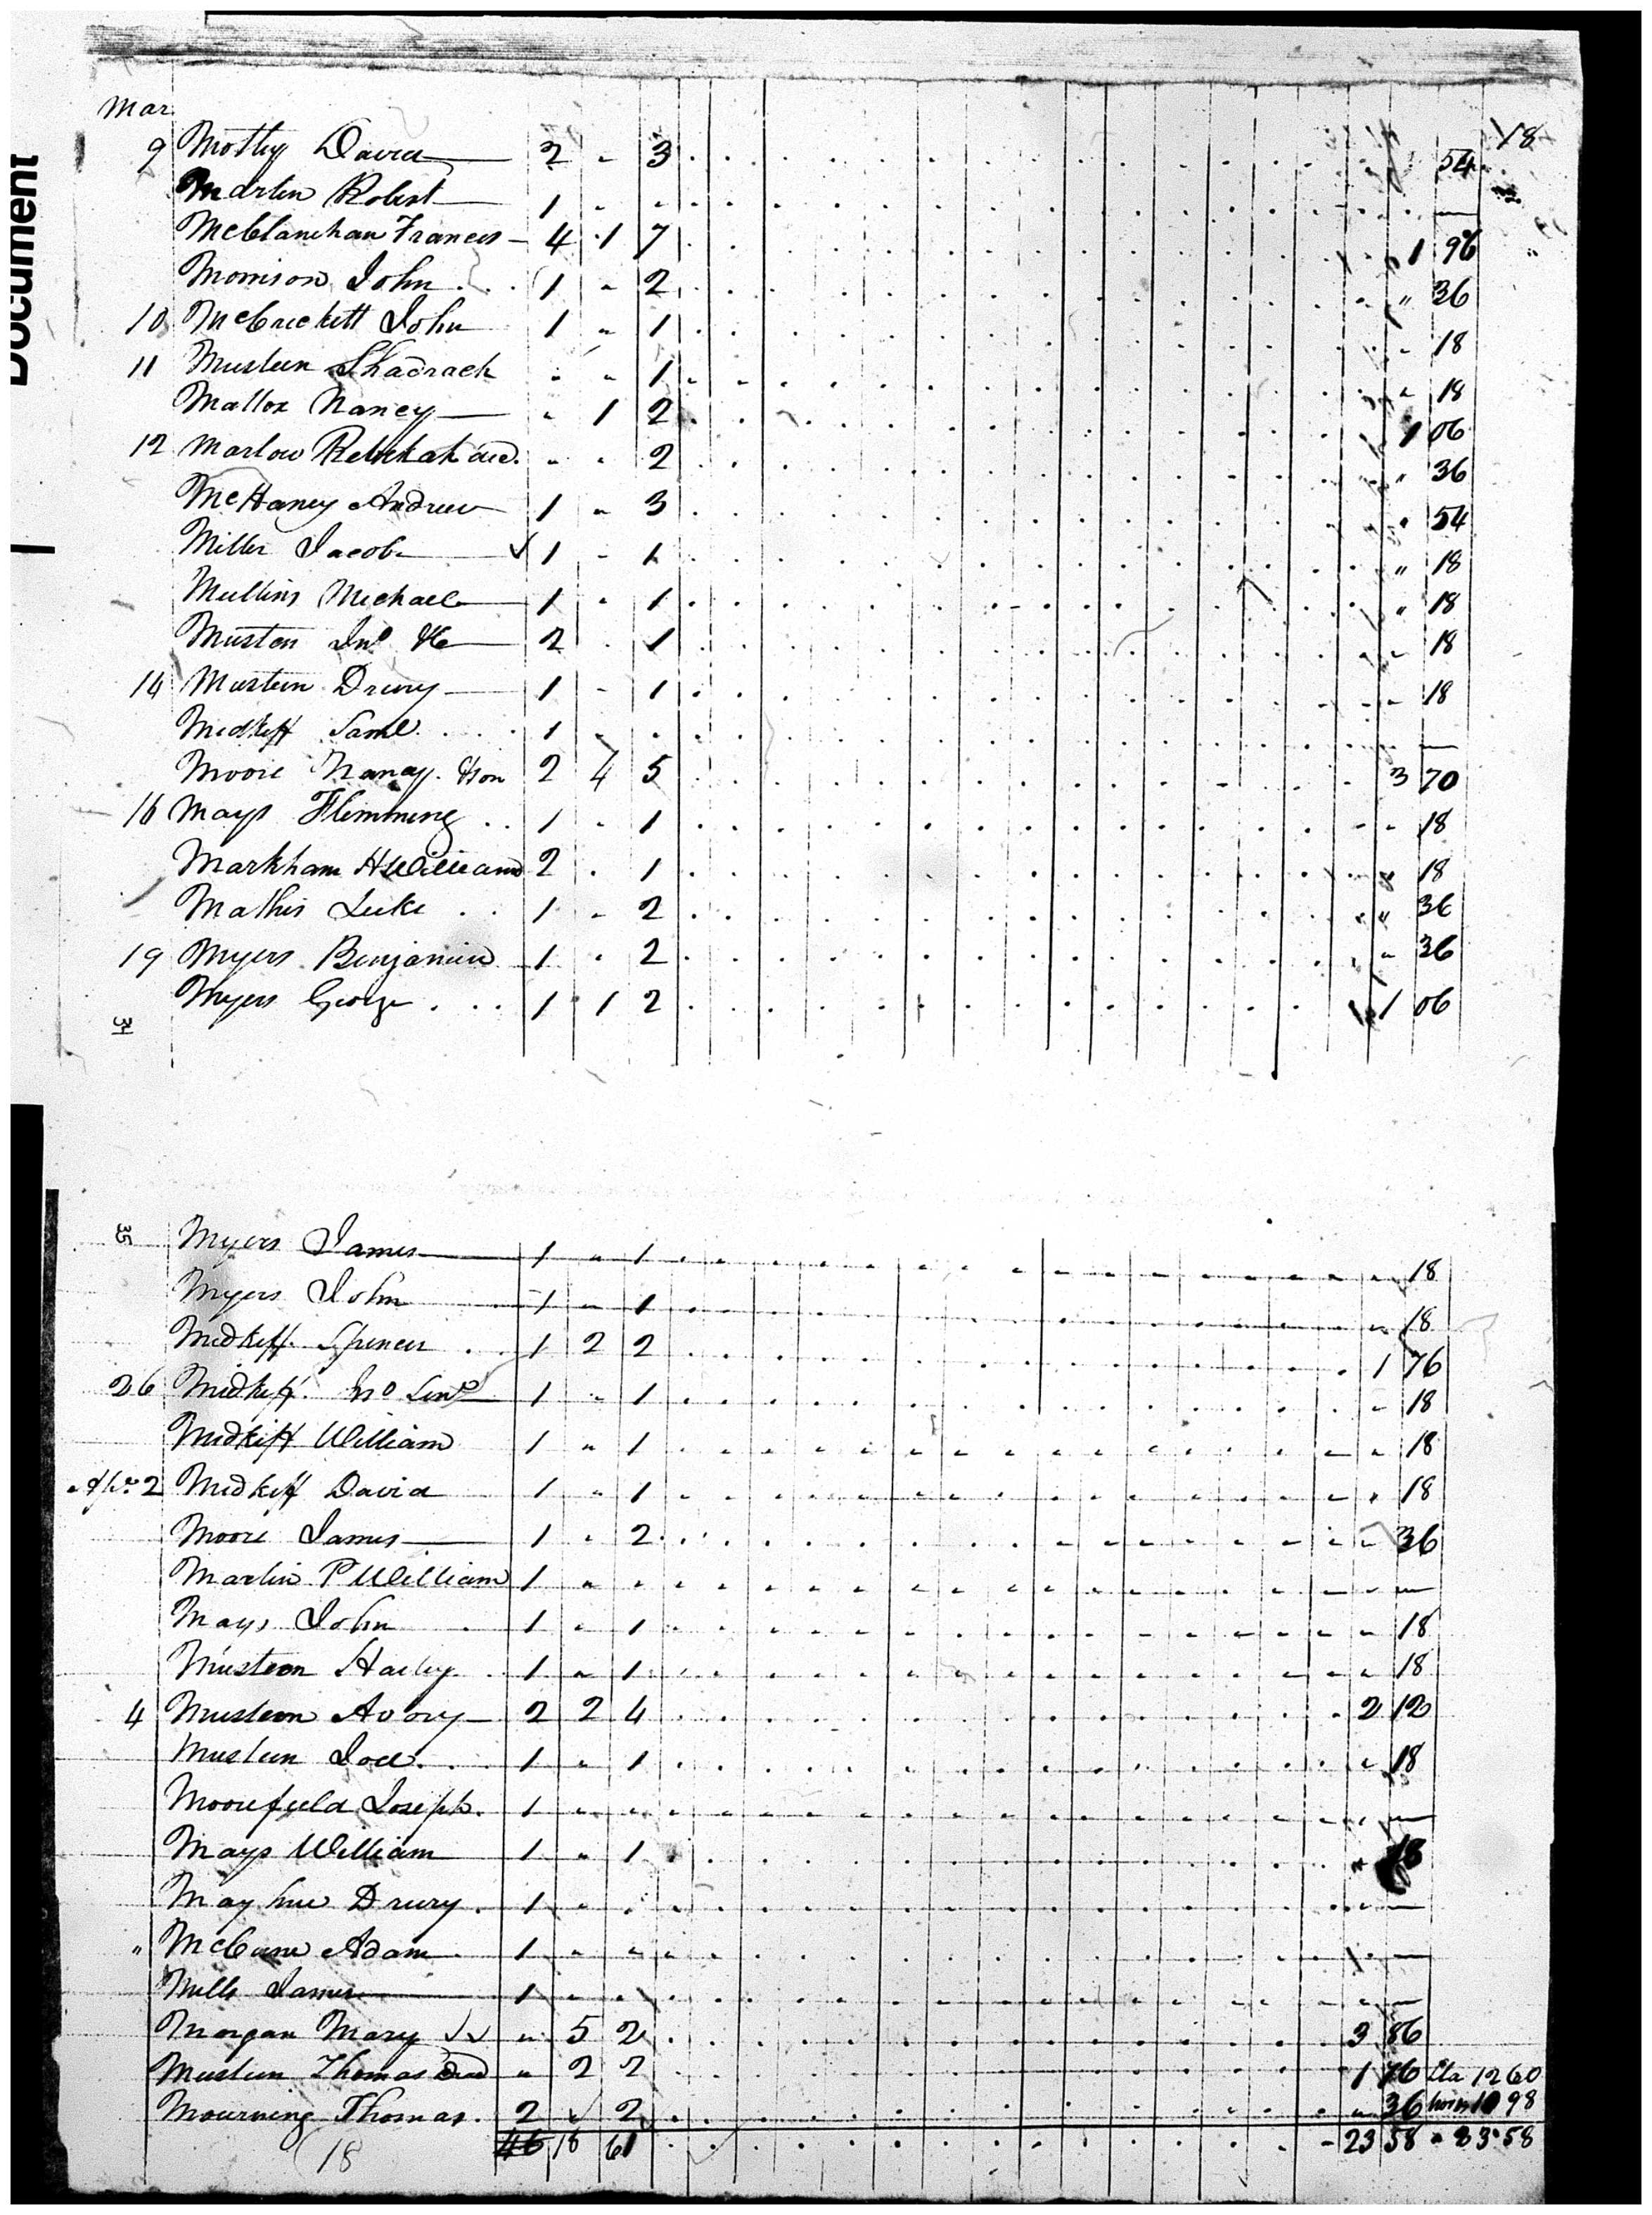 Document
Mar
18
9 Motley David 2 - 3 54
Martin Robert 1 - - —
McClanahan Francis 4 1 7 1 96
Morrison John 1 - 2 " 36
10 McCrickett John 1 - 1 - 18
11 Musteen Shadrach - - 1 " 18
Mattox Nancy - 1 2 1 06
12 Marlow Rebekah decd. - - 2 " 36
McHaney Andrew 1 - 3 " 54
Miller Jacob √ 1 - 1 " 18
Mullins Michael 1 - 1 " 18
Musteen Jno 2 - 1 - 18
14 Musteen Drury 1 - 1 - 18
Midkiff Saml 1 - - —
Moore Nancy &son 2 4 5 3 70
16 Mays Flemming 1 - 1 - 18
Markham H William 2 - 1 " 18
Mathis Luke 1 - 2 " 36
19 Myers Benjamin 1 - 2 - 36
Myers George 1 1 2 1 06
34
35 Myers James 1 - 1 - 18
Myers John 1 - 1 - 18
Midkiff Spencer 1 2 2 1 76
26 Midkiff Jno Senr 1 - 1 - 18
Midkiff William 1 - 1 - 18
Apr. 2 Midkiff David 1 - 1 " 18
Moore James 1 - 2 - 36
Martin P William 1 - - —
Mays John 1 - 1 - 18
Musteen Hailey 1 - 1 - 18
4 Musteen Avory 2 2 4 2 12
Musteen Joel 1 - 1 - 18
Moorefield Joseph 1 - - —
Mays William 1 - 1 " 18
Mayhue Drury 1 - - —
" McCune Adam 1 - - —
Mills James 1 - - —
Morgan Mary √√ - 5 2 3 86
Musteen Thomas Decd - 2 2 1 76 Sla 12 60
Mourning Thomas 2 √ 2 - 36 hors 10 98
18 46 18 61 - 23 58 = 23.58